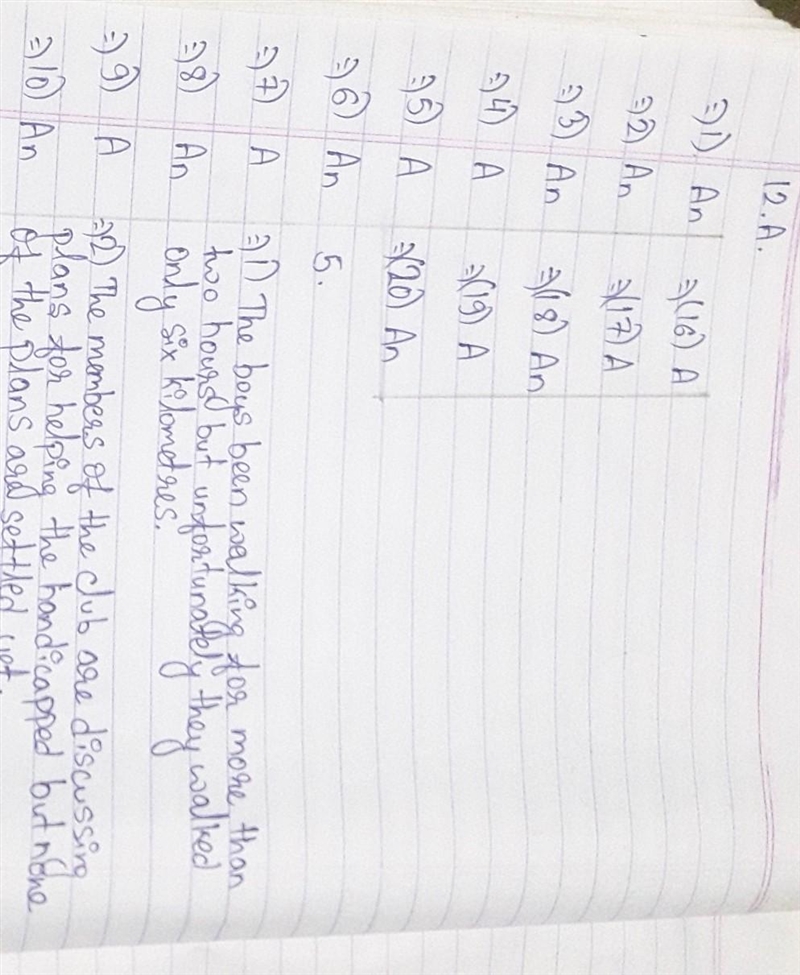 12. A.
⇒1) An
⇒2) An
⇒3) An
⇒4) A
⇒5) A
⇒6) An
⇒7) A
⇒8) An
⇒9) A
⇒10) An
⇒(16) A
⇒(17) A
⇒(18) An
⇒(19) A
⇒(20) An
5.
⇒1) The boys been walking for more than
two hours but unfortunately they walked
only six kilometres.
⇒2) The members of the club are discussing
plans for helping the handicapped but none
of the plans are settled yet.